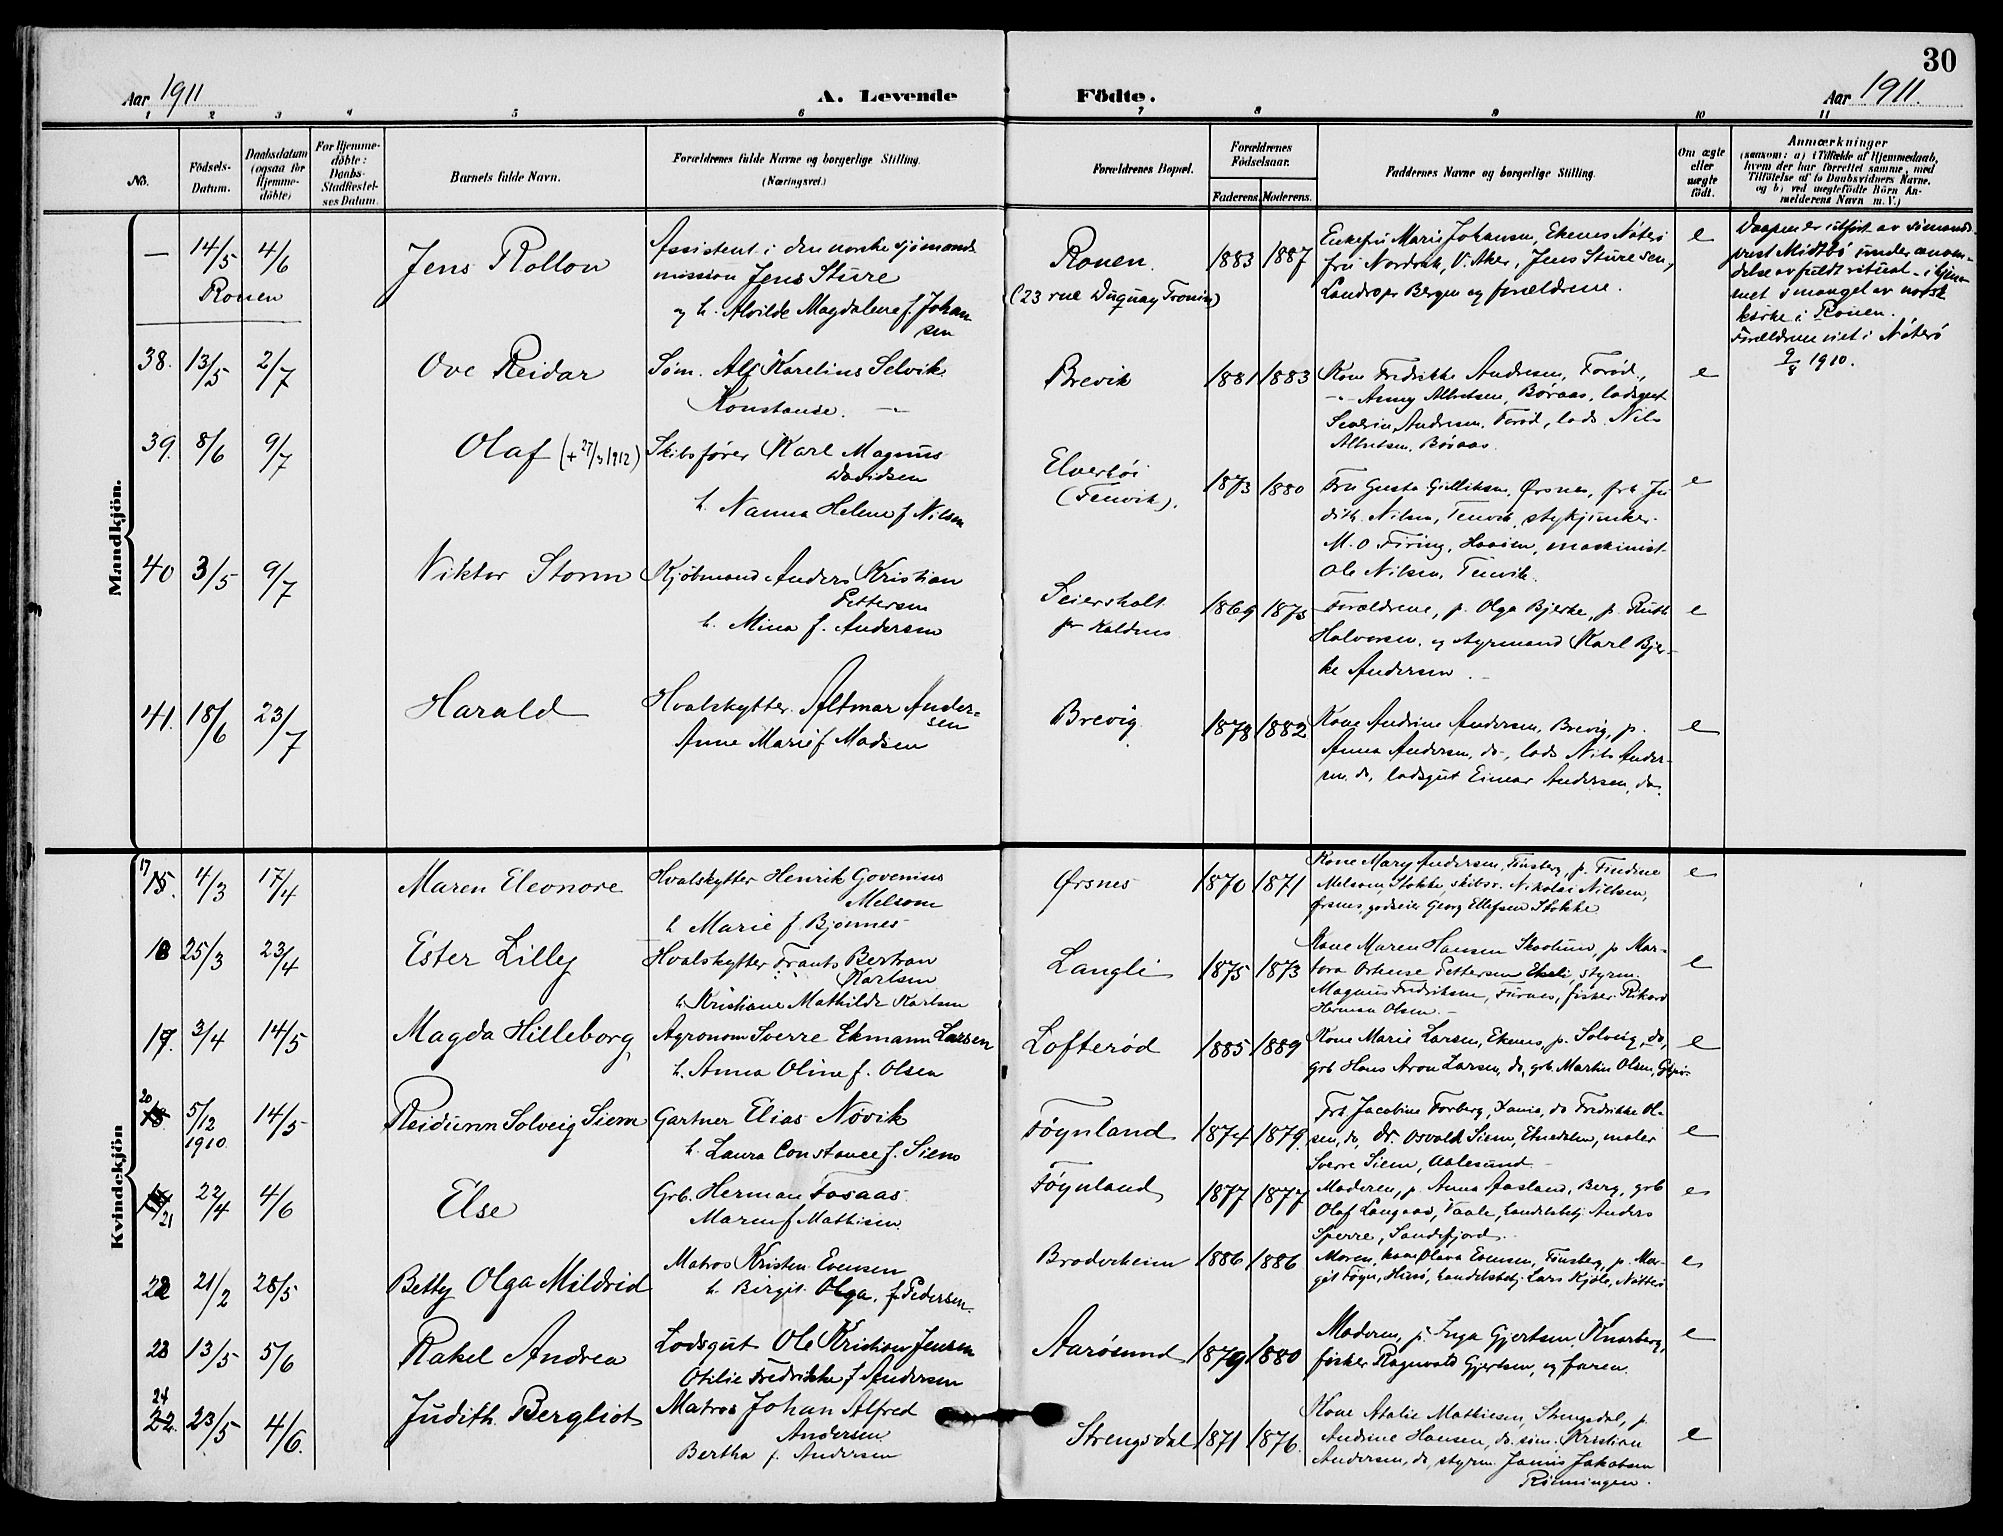 30
Aar 1911
A. Levende
Födte.
Aar 1911.
1 2 3 4 5 6 7 8 9 10 11
No.
Födsels-Datum.
Daabsdatum (ogsaa for Hjemme-döbte)
For Hjemme-döbte: Daabs-Stadfæstel-ses Datum.
Barnets fulde Navn.
Forældrenes fulde Navne og borgerlige Stilling. (Næringsvei.)
Forældrenes Bopæl.
Forældrenes Födselsaar.
Faderens. Moderens.
Faddernes Navne og borgerlige Stilling.
Om ægte eller uægte födt.
Anmærkninger
(saasom: a) i Tilfælde af Hjemmedaab, hvem der har forrettet samme, med Tilföielse af to Daabsvidners Navne, og b) ved uægtefödte Börn An-melderens Navn m. V.)
Mandkjön.
— 14/5 4/6 Jens Rollon
Rouen
Assistent i den norske sjømands
mission Jens Sture
og h. Alvilde Magdalene f. Johan
sen
Rouen.
(23 rue Duguay Trouin)
1883 1887
Enkefru Marie Johansen, Ekenes Nøterø
fru Nordvik, V. Aker, Jens Sturesen,
Landrop Bergen og forældrene.
e
Daapen er utført av sømands
prest Midtbö under anven-
delse av fuldt ritual - i hjem-
met i mangel av norsk
kirke i Rouen.
Forældrene viet i Nøterö
9/8 1910.
38. 13/5 2/7 Ove Reidar
Søm. Alf Karelius Selvik
Konstanse. —
Brevik
1881 1883
Kone Fredrikke Andresen, Forød,
-"- Anny Albretsen, Böraas, lodsgut
Severin Andresen, Forød, lods. Nils
Albretsen, Böraas.
e
39. 8/6 9/7 Olaf (+ 27/3 1912)
Skibsfører Karl Magnus
Davidsen
h. Nanna Helene f Nilsen
Elverhöi
(Tenvik).
1873 1880
Fru Gusta Gulliksen, Ørsnes, frk Ju
dith Nilsen, Tenvik, stykjunker
M. O Firing, Haaien, maskinist
Ole Nilsen, Tenvik.
e
40 3/5 9/7 Viktor Storm
Kjöbmand Anders Kristian
Pettersen
h. Mina f. Andersen
Seiersholt
pr Kaldnes
1869 1875
Forældrene, p. Olga Bjerke, p. Ruth
Halvorsen, og styrmand Karl Bjer-
ke Andersen.
e
41. 18/6 23/7 Harald
Hvalskytter Altmar Ander-
sen
Anne Marie f Madsen
Brevig.
1878 1882
Kone Andrine Andersen, Brevig, p.
Anna Andersen, do, lods Nils Ander-
sen, do, lodsgut Einar Andersen, do.
e
Kvindekjön
17 15. 4/3 17/4 Maren Eleonore
Hvalskytter Henrik Govenius
Melsom
h Marie f. Bjönnes
Ørsnes
1870 1871
Kone Mary Andersen, Tönsberg, p. Tindine
Melsom, Stokke, skibsr. Nikolai Nielsen,
Ørsnes, godseier Georg Ellefsen Stokke
e
18 25/3 23/4 Ester Lilly
Hvalskytter Frants Bertran
Karlsen
h Kristiane Mathilde Karlsen
Langli
1875 1873
Kone Maren Hansen Skoolunn, p Mar-
tora Othense Pettersen Ekeli, styrm.
Magnus Fredriksen, Furnes, fisker Rikard
Herman Olsen.
e
19. 3/4 14/5 Magda Hilleborg,
Agronom Sverre Ekmann Larsen
h. Anna Oline f. Olsen
Lofterød
1885 1889
Kone Marie Larsen, Ekenes, p. Solveig, do,
grb Hans Aron Larsen, do, grb. Martin Olsen,
e
20 18. 5/12 1910. 14/5 Reidunn Solveig Siem
Gartner Elias Növik
h. Laura Constance f. Siem
Föynland
1874 1879.
Frk Jacobine Torberg, do Fredrikke Ol-
sen, do, dr. Osvald Siem, Etnedalen, maler
Sverre Siem, Aalesund.
e
21 22/4 4/6 Else
Grb. Herman Fosaas
Maren f Mathisen
Föynland
1877 1877
Moderen, p. Anna Aasland, Berg, grb
Olaf Langaas, Vaale, handelsbetj Anders
Sperre, Sandefjord.
e
22 21/2 28/5 Betty Olga Mildrid
Matros Kristen Evensen
h. Birgit Olga, f Pedersen.
Broderheim
1886 1886
Moren, kone Olava Evensen, Tönsberg, p. Mar-
git Föyn, Husö, handelsbetj. Lars Kjöle, Nötterö
e
23 13/5 5/6 Rakel Andrea
Lodsgut Ole Kristian Jensen
Otilie Fredrikke f Andersen
Aarösund
1879 1880
Moderen, p. Inga Gjertsen, Knarberg,
fisker Ragnvald Gjertsen, og faren.
e
24 22. 23/5 4/6. Judith Bergliot
Matros Johan Alfred
Andersen
Bertha f. Andersen
Strengsdal
1871 1876.
Kone Atalie Mathiesen, Strengsdal, p
Andrine Hansen, do, söm. Kristian
Andersen, do, styrm. Janus Jakobsen
Rönningen.
e